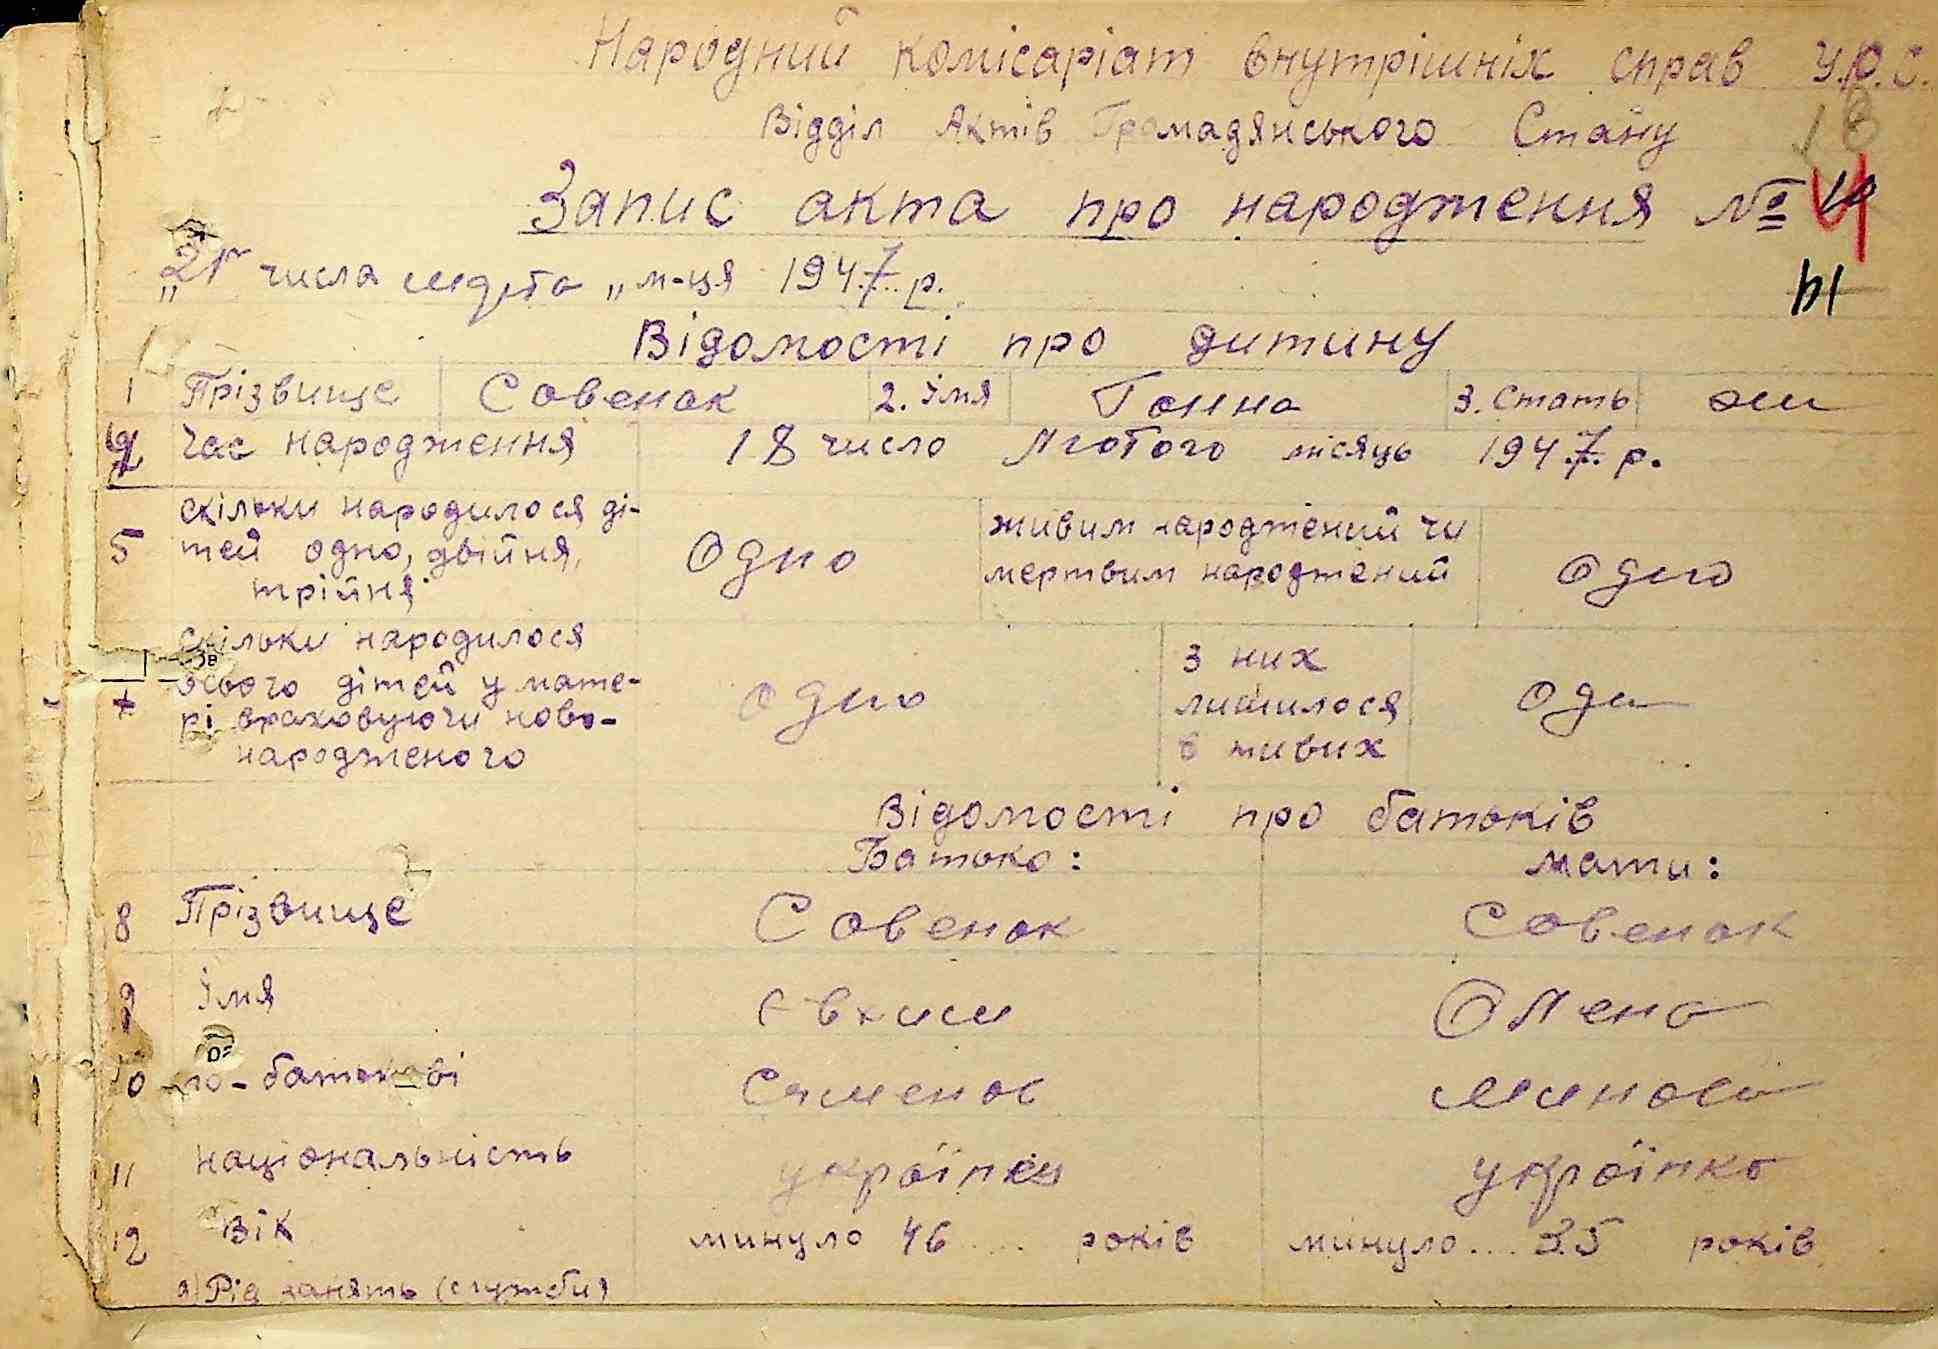 Народний комісаріат внутрішніх справ У.Р.С.
Відділ Актів Громадянського Стану
18
Запис акта про народження №
"21" числа " м-ця 1947 р.
Відомості про дитину
1 Прізвище Совенок 2. Імя Ганна 3. Стать жи
час народження 18 число Лютого місяць 1947 р.
5 скільки народилося ді-
тей одно, двійня, Одно живим народжений чи
трійня мертвим народжений одно
скільки народилося
всього дітей у мате- одно З них
рі враховуючи ново- лишилося один
народженого в живих
Відомості про батьків
Батько: мати:
8 Прізвище Совенок Совенок
9 Імя Олена
10 по-батькові Семенов
11 національність українец українка
12 Вік минуло 46 .... років минуло.... 35 років
а) Рід занять (служби)